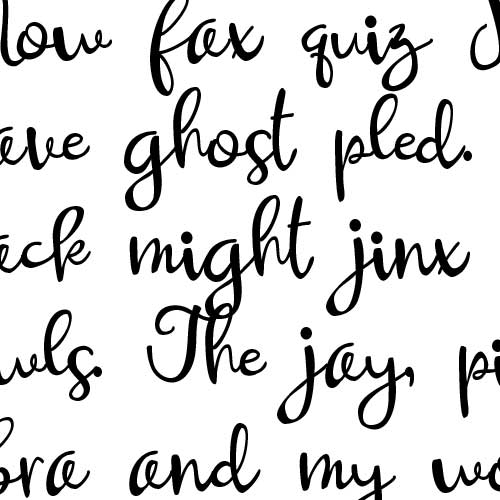 low fax quiz
ave ghost pled.
ack might jinx
wls. The jay, pi
ora and my wo